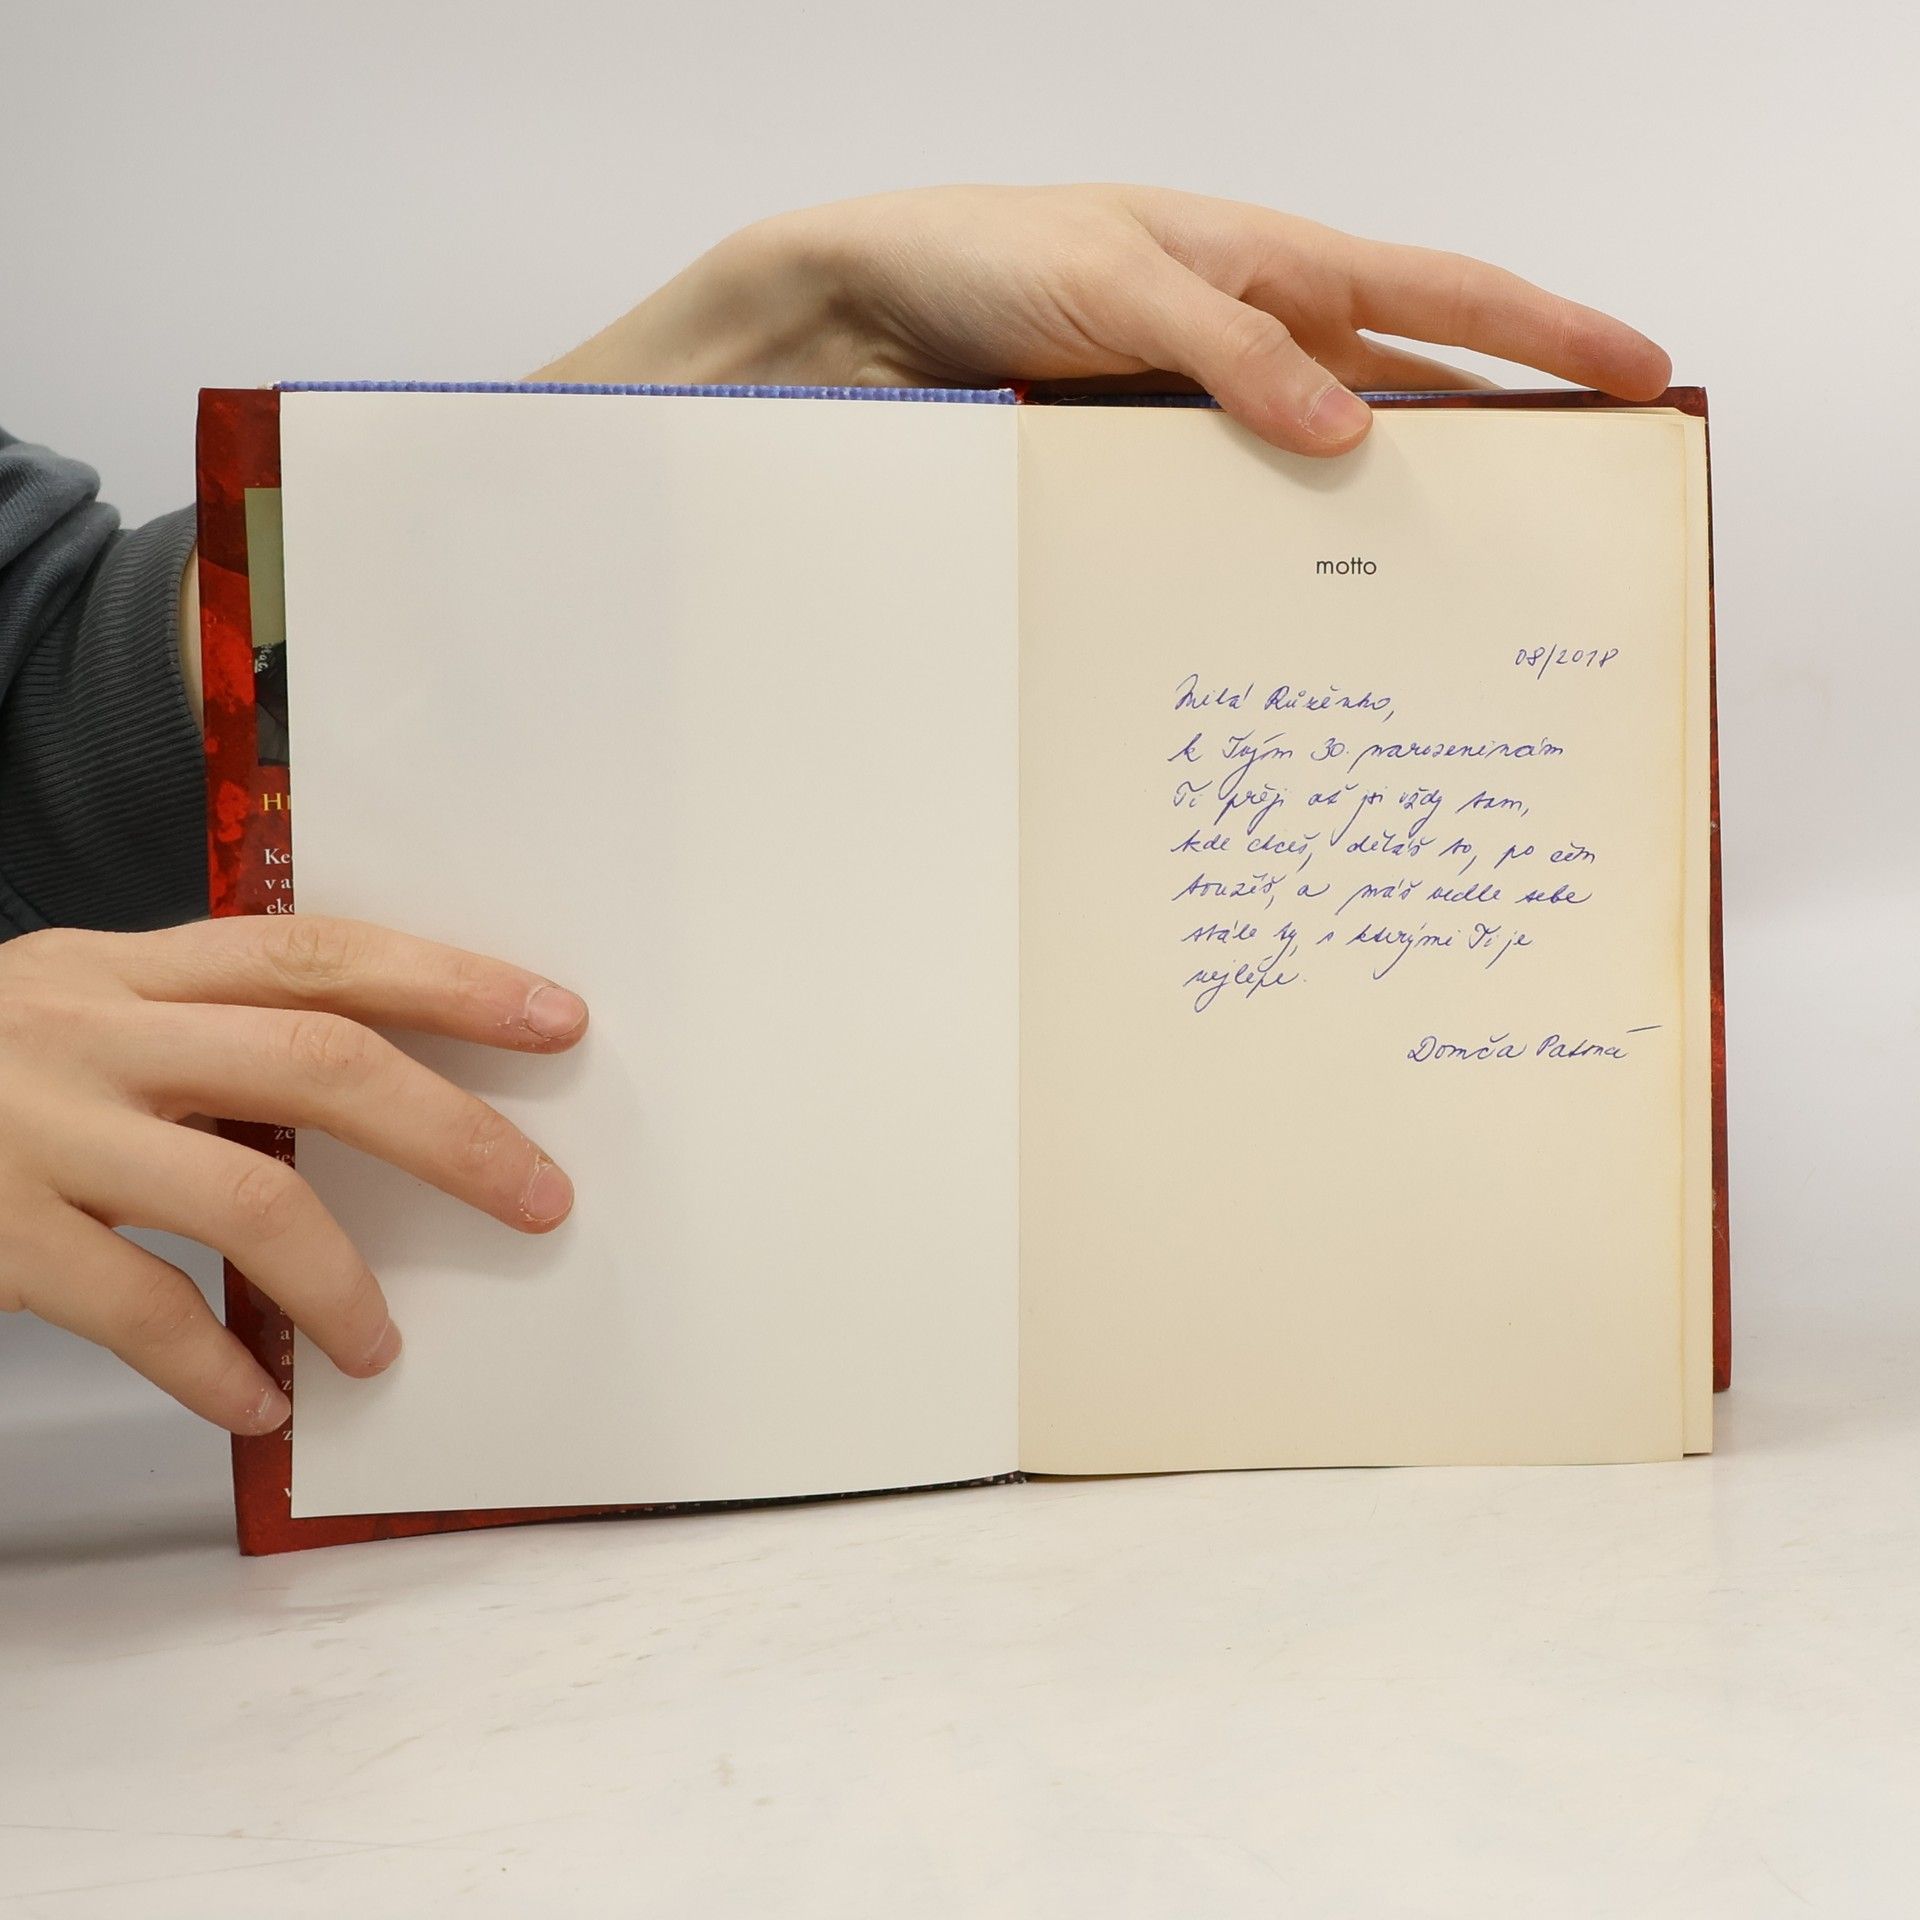 HI
Ke
v a
eko
že
jed
a
a
z
z
v
motto
08/2018
Milá Růženko,
k Tvým 30. narozeninám
Ti přeji ať jsi vždy tam,
kde chceš, děláš to, po čem
toužíš, a máš vedle sebe
stále ty, s kterými Ti je
nejlépe.
Domča